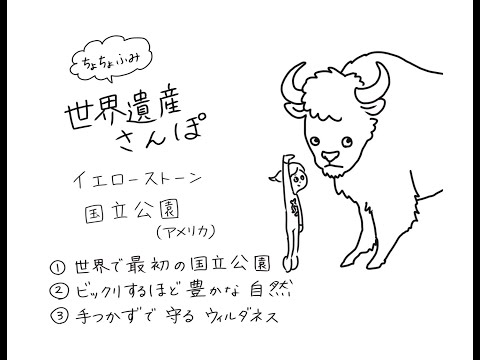 ちょちょふみ
世界遺産
さんぽ
イエローストーン
国立公園
(アメリカ)
① 世界で最初の国立公園
② ビックリするほど豊かな自然
③ 手つかずで守るウィルダネス